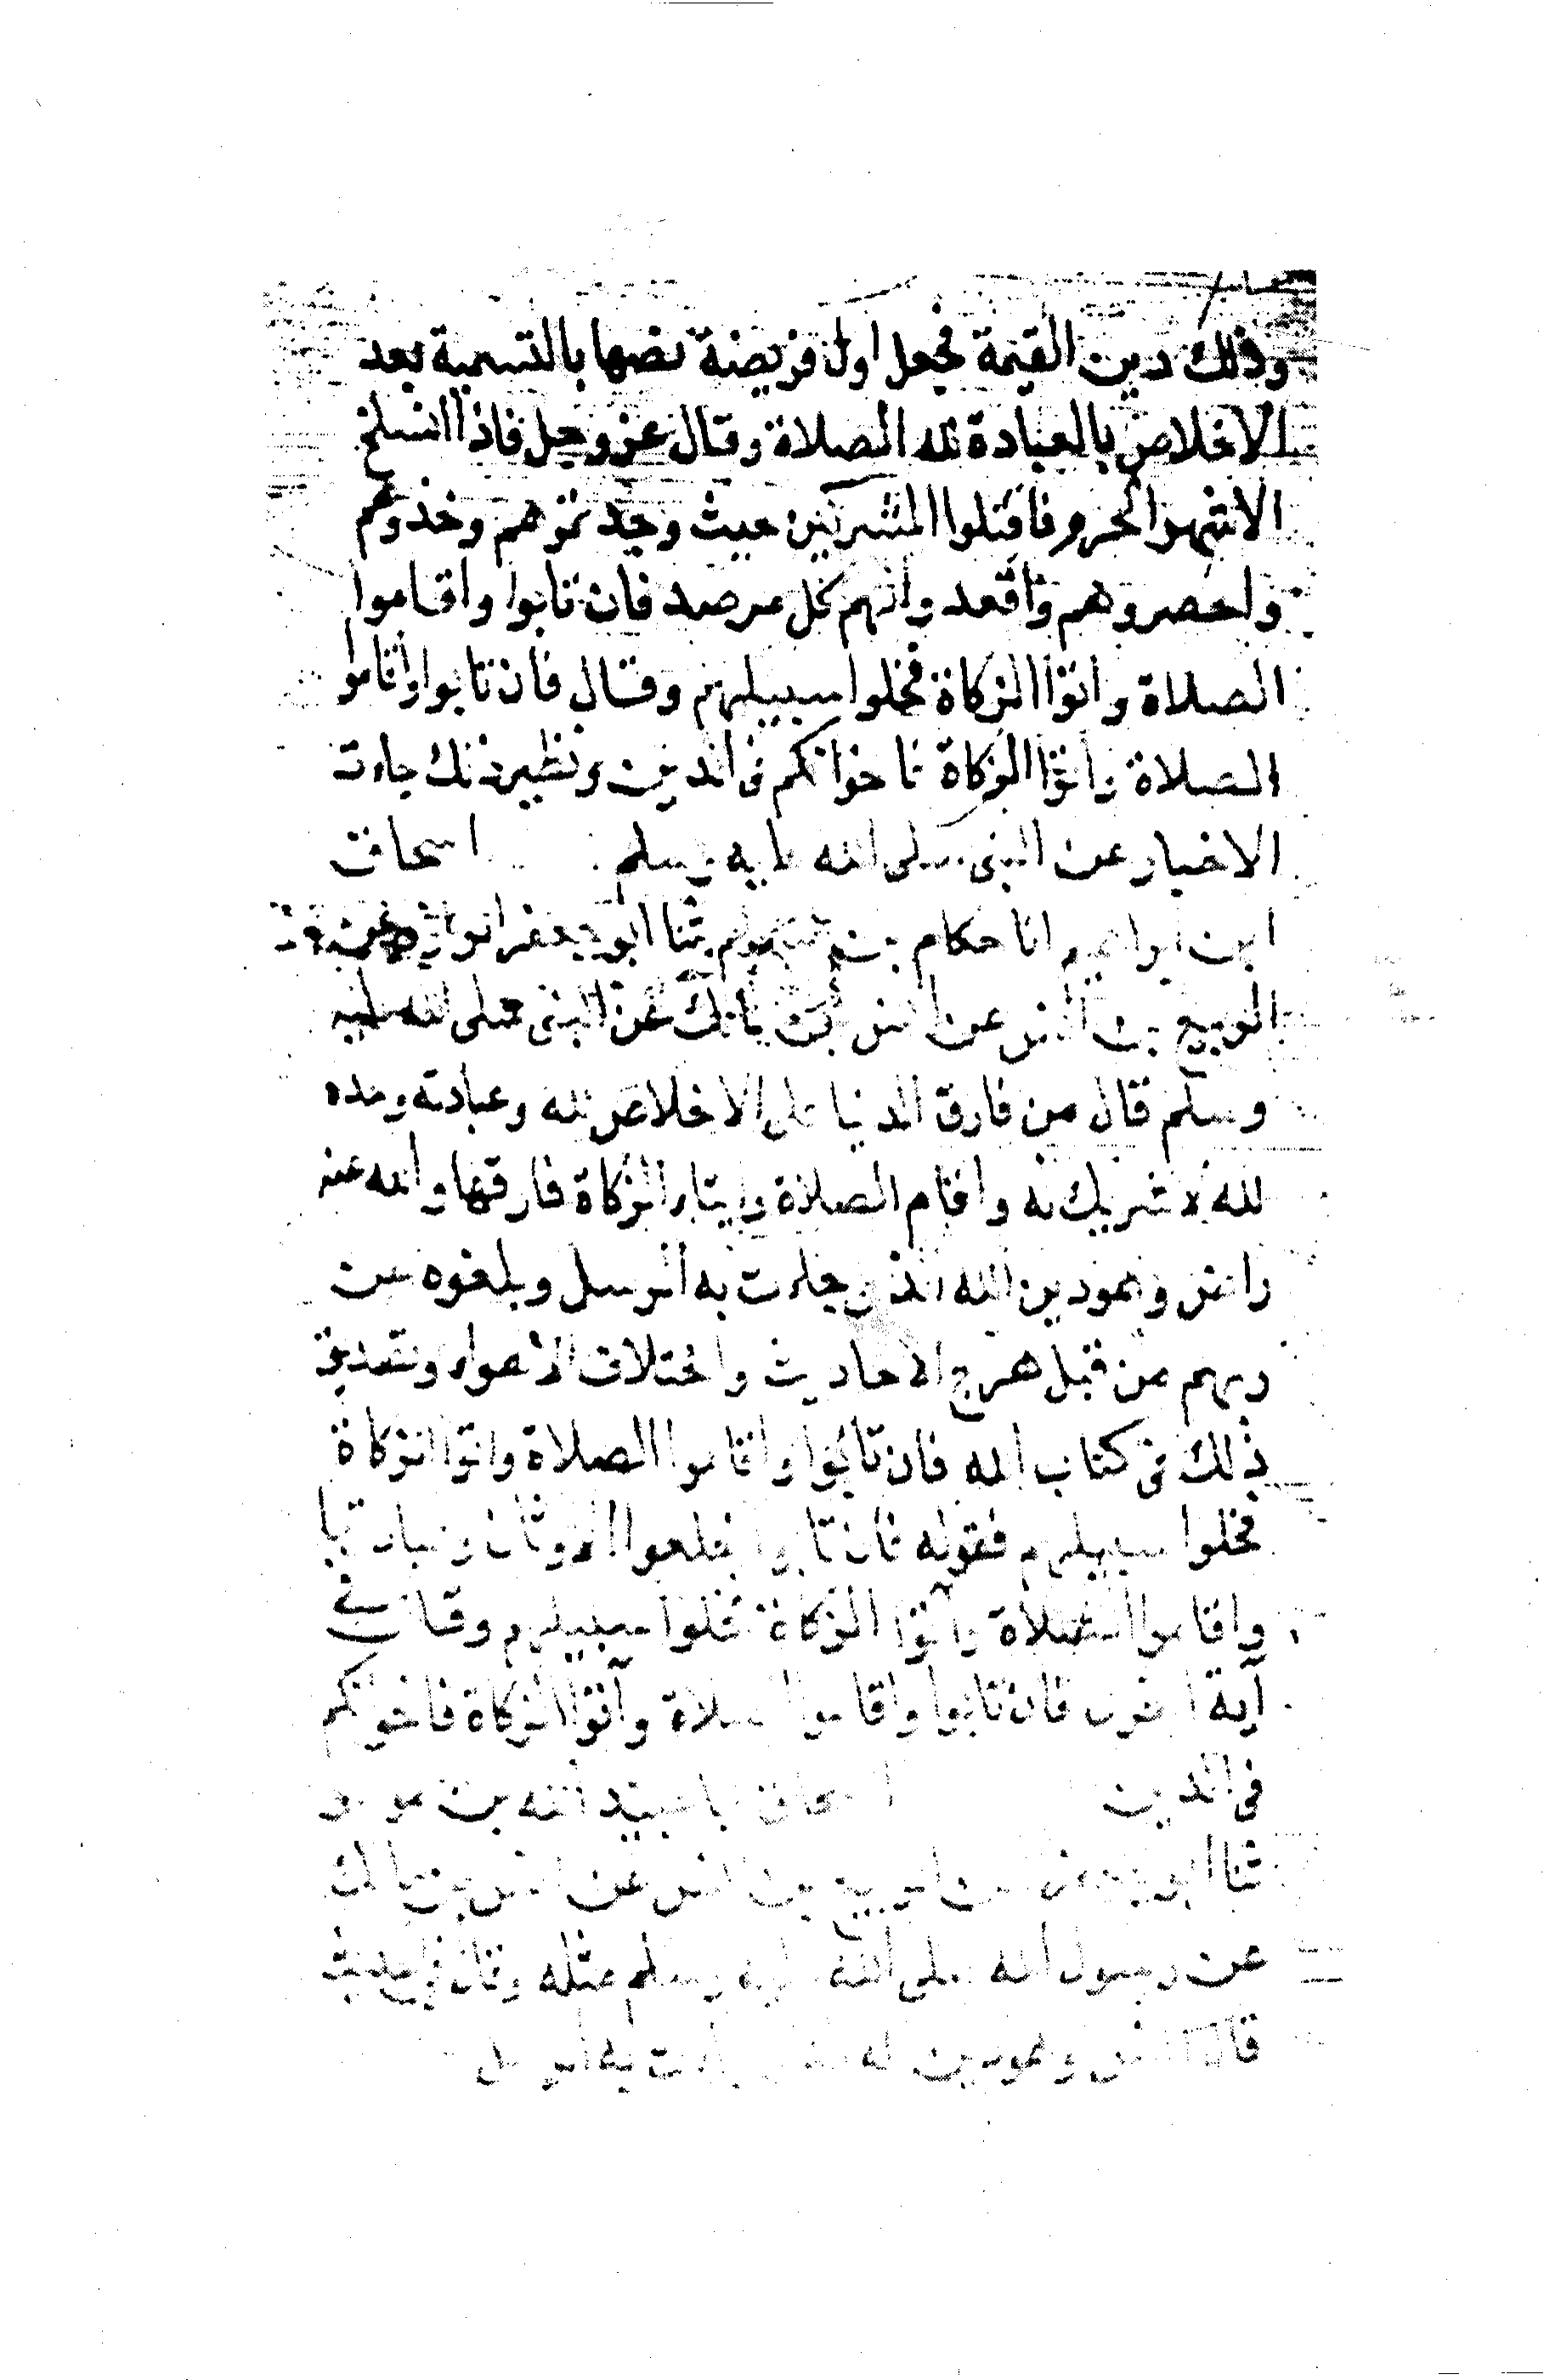 وذلك دين القيمة فجعل اول فريضة نصها بالتسمية بعد
الاخلاص بالعبادة لله الصلاة وقال عز وجل فاذا انسلخ
الاشهر الحرم فاقتلوا المشركين حيث وجدتموهم وخذوهم
واحصروهم واقعدوا لهم كل مرصد فان تابوا واقاموا
الصلاة واتوا الزكاة فخلوا سبيلهم وقال فان تابوا واقاموا
الصلاة وأتوا الزكاة فاخوانكم في الدين ونظير ذلك جاءت
الاخبار عن النبي صلى الله عليه وسلم اسحاق
ابن ابراهيم انا حكام بن ثنا ابو جعفر الرازي عن
الربيع بن انس عن انس بن مالك عن النبي صلى الله عليه
وسلم قال من فارق الدنيا على الاخلاص لله وعبادته وحده
لله لا شريك له واقام الصلاة وايتاء الزكاة فارقها والله عنه
راض وهو دين الله الذي جاءت به الرسل وبلغوه عن
ربهم من قبل هرج الاحاديث واختلاف الاهواء وتصديق
ذلك في كتاب الله فان تابوا واقاموا الصلاة واتوا الزكاة
فخلوا سبيلهم فقوله فان تابوا خلعوا الاوثان وعبادتها
واقاموا الصلاة وآتوا الزكاة فخلوا سبيلهم وقال في
آية اخرى فان تابوا واقاموا الصلاة وآتوا الزكاة فاخوانكم
في الدين اسحاق انا عبيد الله بن موسى
ثنا ابو جعفر عن الربيع بن انس عن انس بن مالك
عن رسول الله صلى الله عليه وسلم مثله وقال في حديثه
قال انس وهو دين الله الذي جاءت به الرسل